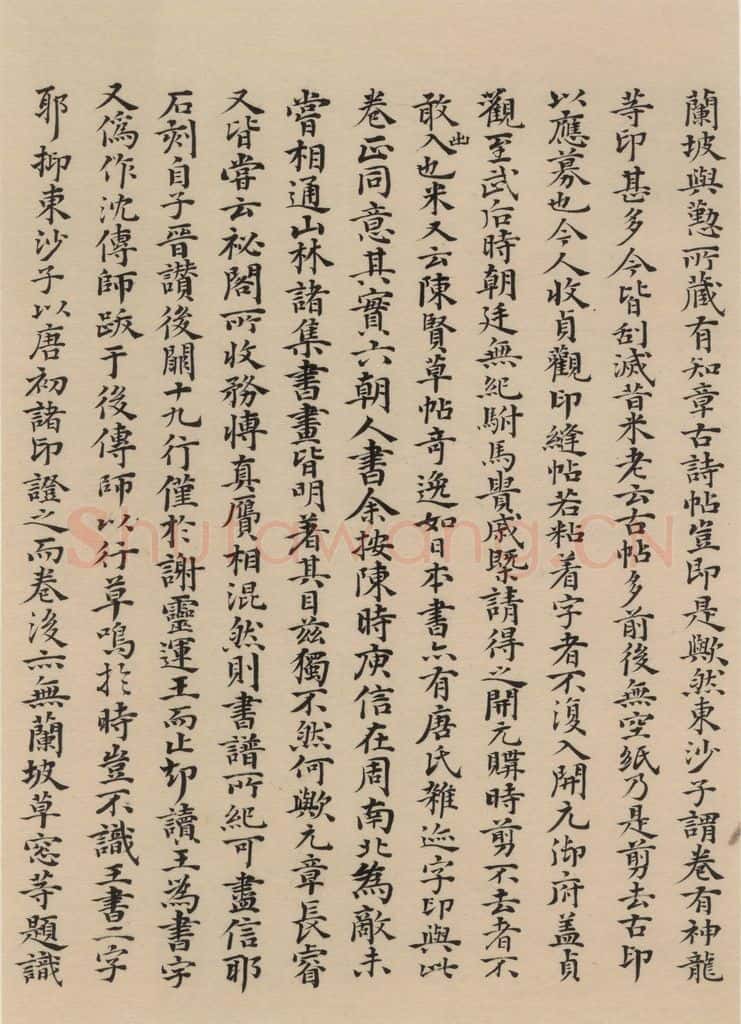 蘭坡與懃所藏有知章古詩帖豈即是歟然東沙子謂卷有神龍
等印甚多今皆刮滅昔米老云古帖多前後無空紙乃是剪去古印
以應募也今人收貞觀印縫帖若粘着字者不復入開元御府盖貞
觀至武后時朝廷無紀駙馬貴戚䁗請得之開元購時剪不去者不
敢出入也米又云陳賢草帖奇逸如日本書亦有唐氏雜迹字印與此
卷正同意其實六朝人書余按陳時庾信在周南北為敵未
嘗相通山林諸集書畫皆明著其目茲獨不然何歟元章長睿
又皆嘗云祕閣所收務慱真贋相混然則書譜所紀可盡信耶
石刻自子晋讃後闕十九行僅於謝靈運王而止却讀王為書字
又偽作沈傳師跋于後傳師以行草鳴於時豈不識王書二字
耶抑東沙子以唐初諸印證之而卷後亦無蘭坡草窓等題識
Shufawang.CN